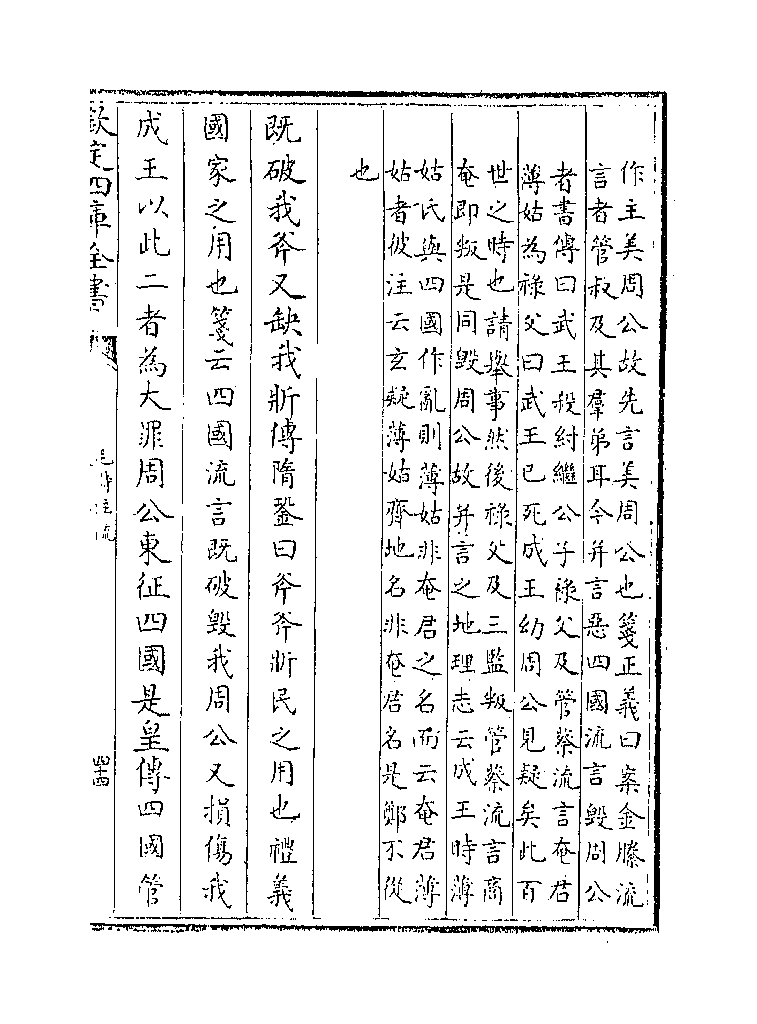 作主美周公故先言美周公也箋正義曰案金縢流
言者管叔及其羣弟耳今并言惡四國流言毀周公
者書傳曰武王殺紂繼公子祿父及管蔡流言奄君
薄姑為祿父曰武王已死成王幼周公見疑矣此百
世之時也請舉事然後祿父及三監叛管蔡流言商
奄即叛是同毀周公故并言之地理志云成王時薄
姑氏與四國作亂則薄姑非奄君之名而云奄君薄
姑者彼注云玄疑薄姑齊地名非奄君名是鄭不從
也
既破我斧又缺我斨傳隋銎曰斧斧斨民之用也禮義
國家之用也箋云四國流言既破毀我周公又損傷我
成王以此二者為大罪周公東征四國是皇傳四國管
欽定四庫全書
毛詩注疏
四十四